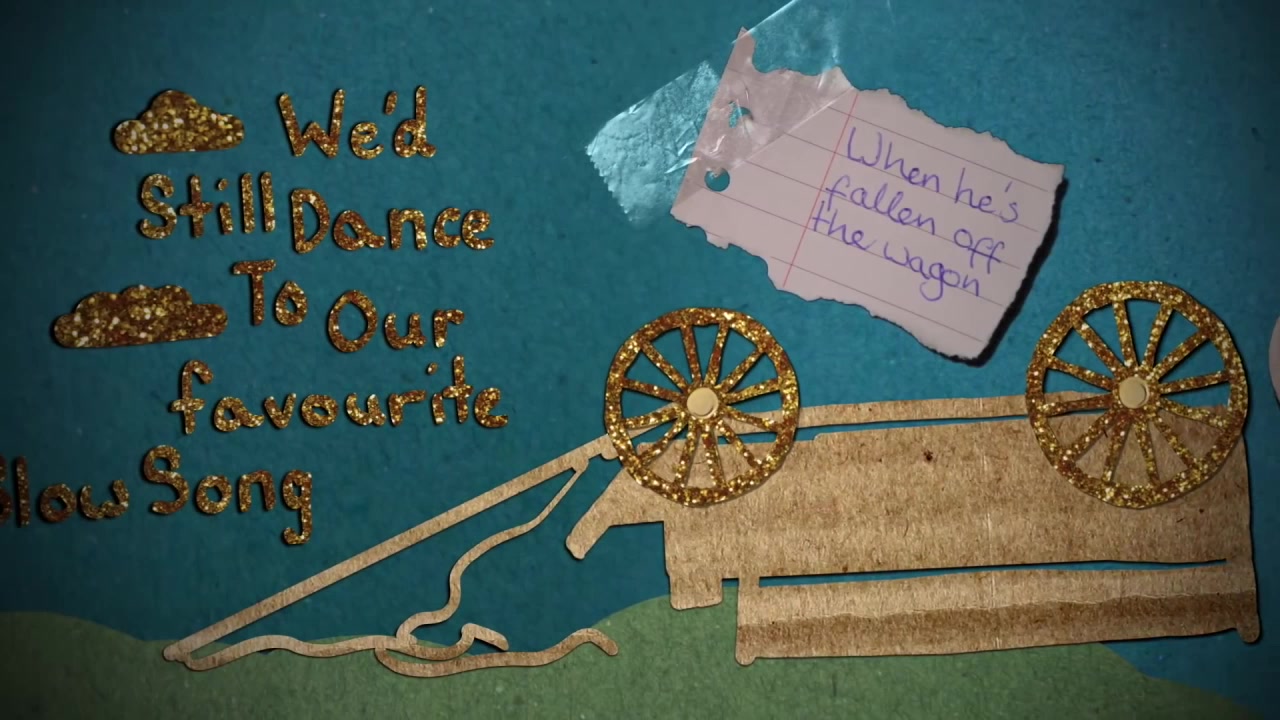 We'd
Still Dance
To Our
favourite
Slow Song
When he's
fallen off
the wagon